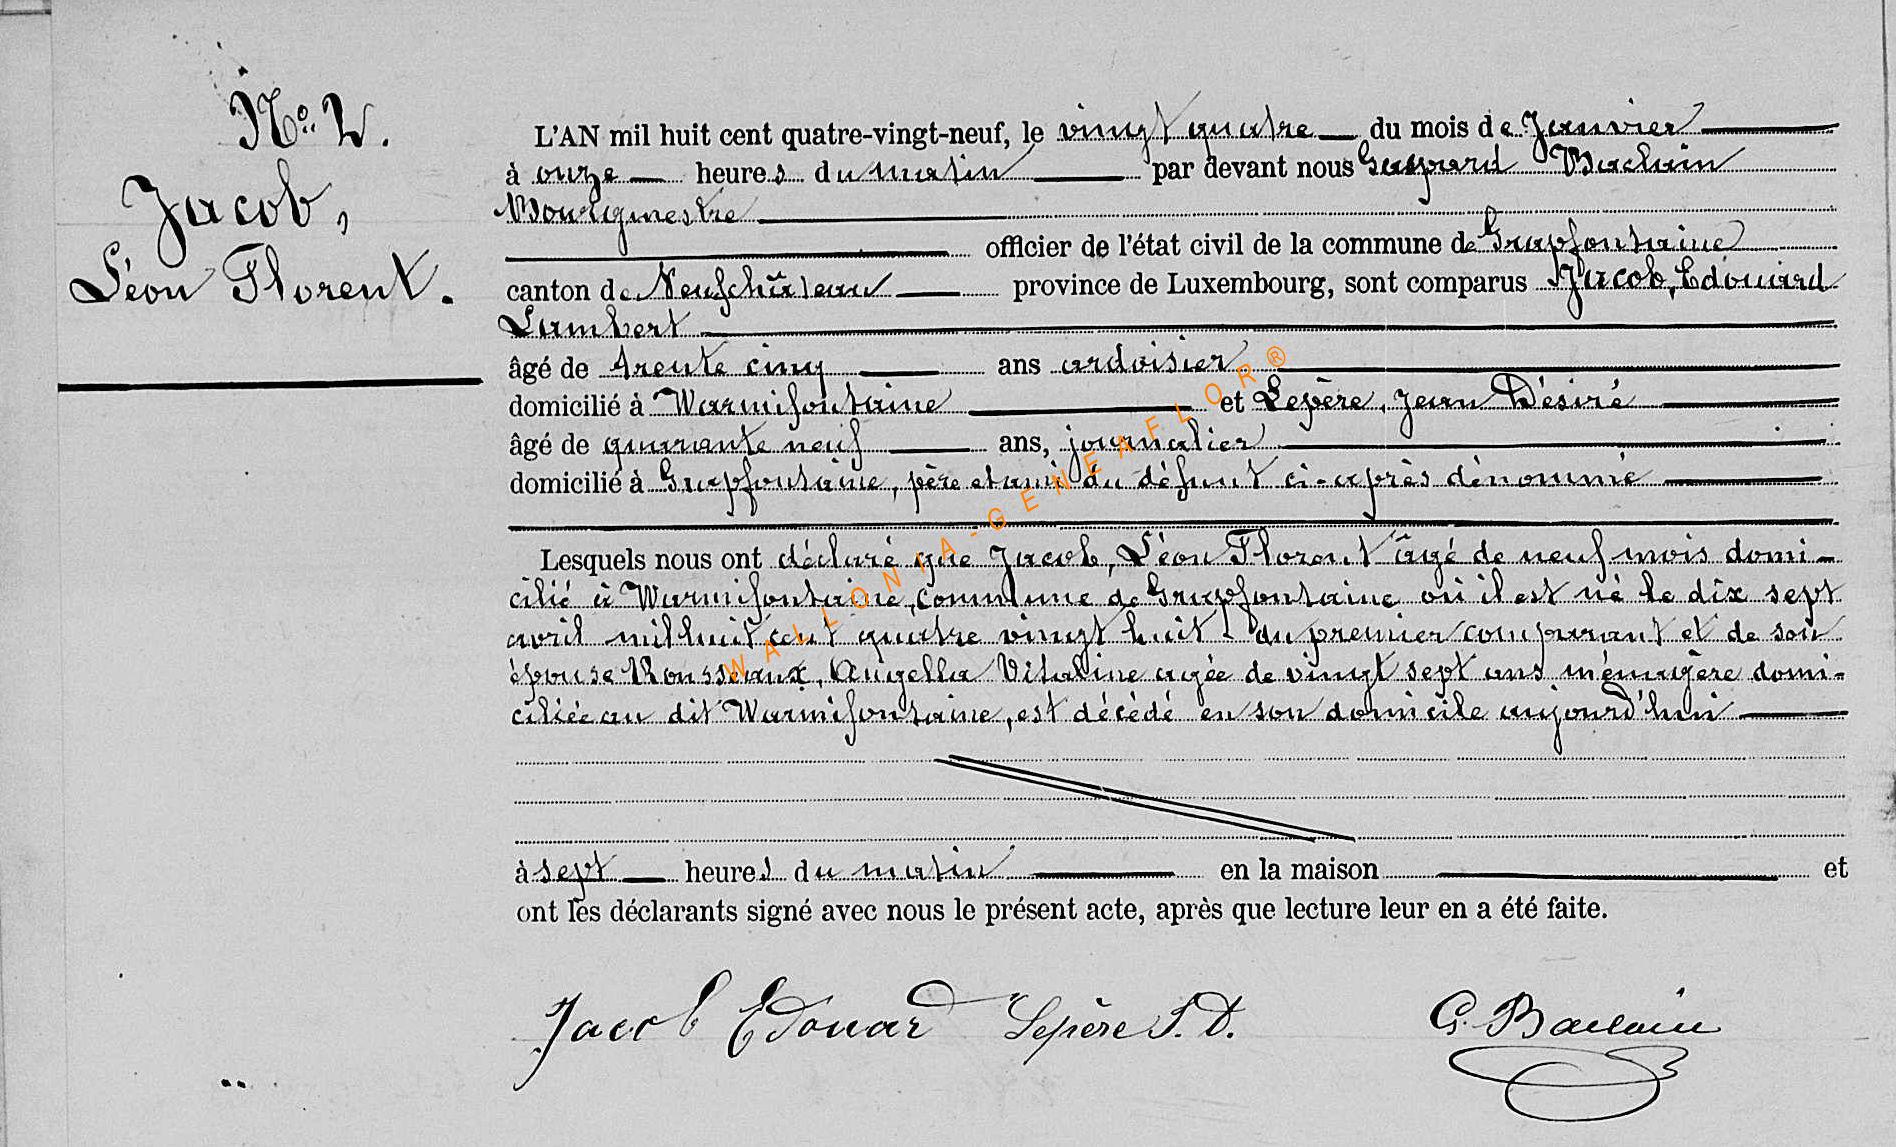 No. 2.
Jacob,
Léon Florent.
L'AN mil huit cent quatre-vingt-neuf, le vingt quatre du mois de Janvier
à onze heures du matin par devant nous Gaspard Baclain
Bourgmestre
officier de l'état civil de la commune de Grapfontaine
canton de Neufchâteau province de Luxembourg, sont comparus Jacob, Edouard
Lambert
âgé de trente cinq ans ardoisier
domicilié à Warmifontaine et Lepère, Jean Désiré
âgé de quarante neuf ans, journalier
domicilié à Grapfontaine, père et ami du défunt ci-après dénommé
Lesquels nous ont déclaré que Jacob, Léon Florent âgé de neuf mois domi-
cilié à Warmifontaine, commune de Grapfontaine où il est né le dix sept
avril mil huit cent quatre vingt huit du premier comparant et de son
épouse Rousseaux, Angella Vitaline agée de vingt sept ans ménagère domi-
ciliée au dit Warmifontaine, est décédé en son domicile aujourd'hui
à sept heures du matin en la maison et
ont les déclarants signé avec nous le présent acte, après que lecture leur en a été faite.
Jacob Edouard Lepère J. D. G. Baclain
WALLONIA-GENEAFLOR®